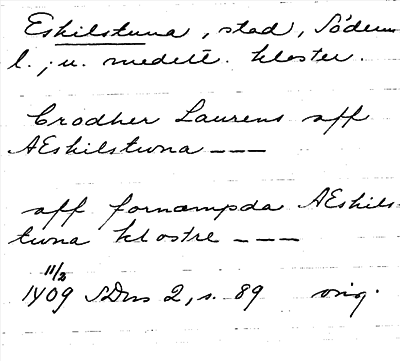 Eskilstuna, stad, Söderm
l.; u. medelt. kloster.
Brodher Laurens aff
AEskilstwna ---
aff fornæmpda AEskils-
twna klostre ---
11/2
1409 SDns 2, s. 89 orig.